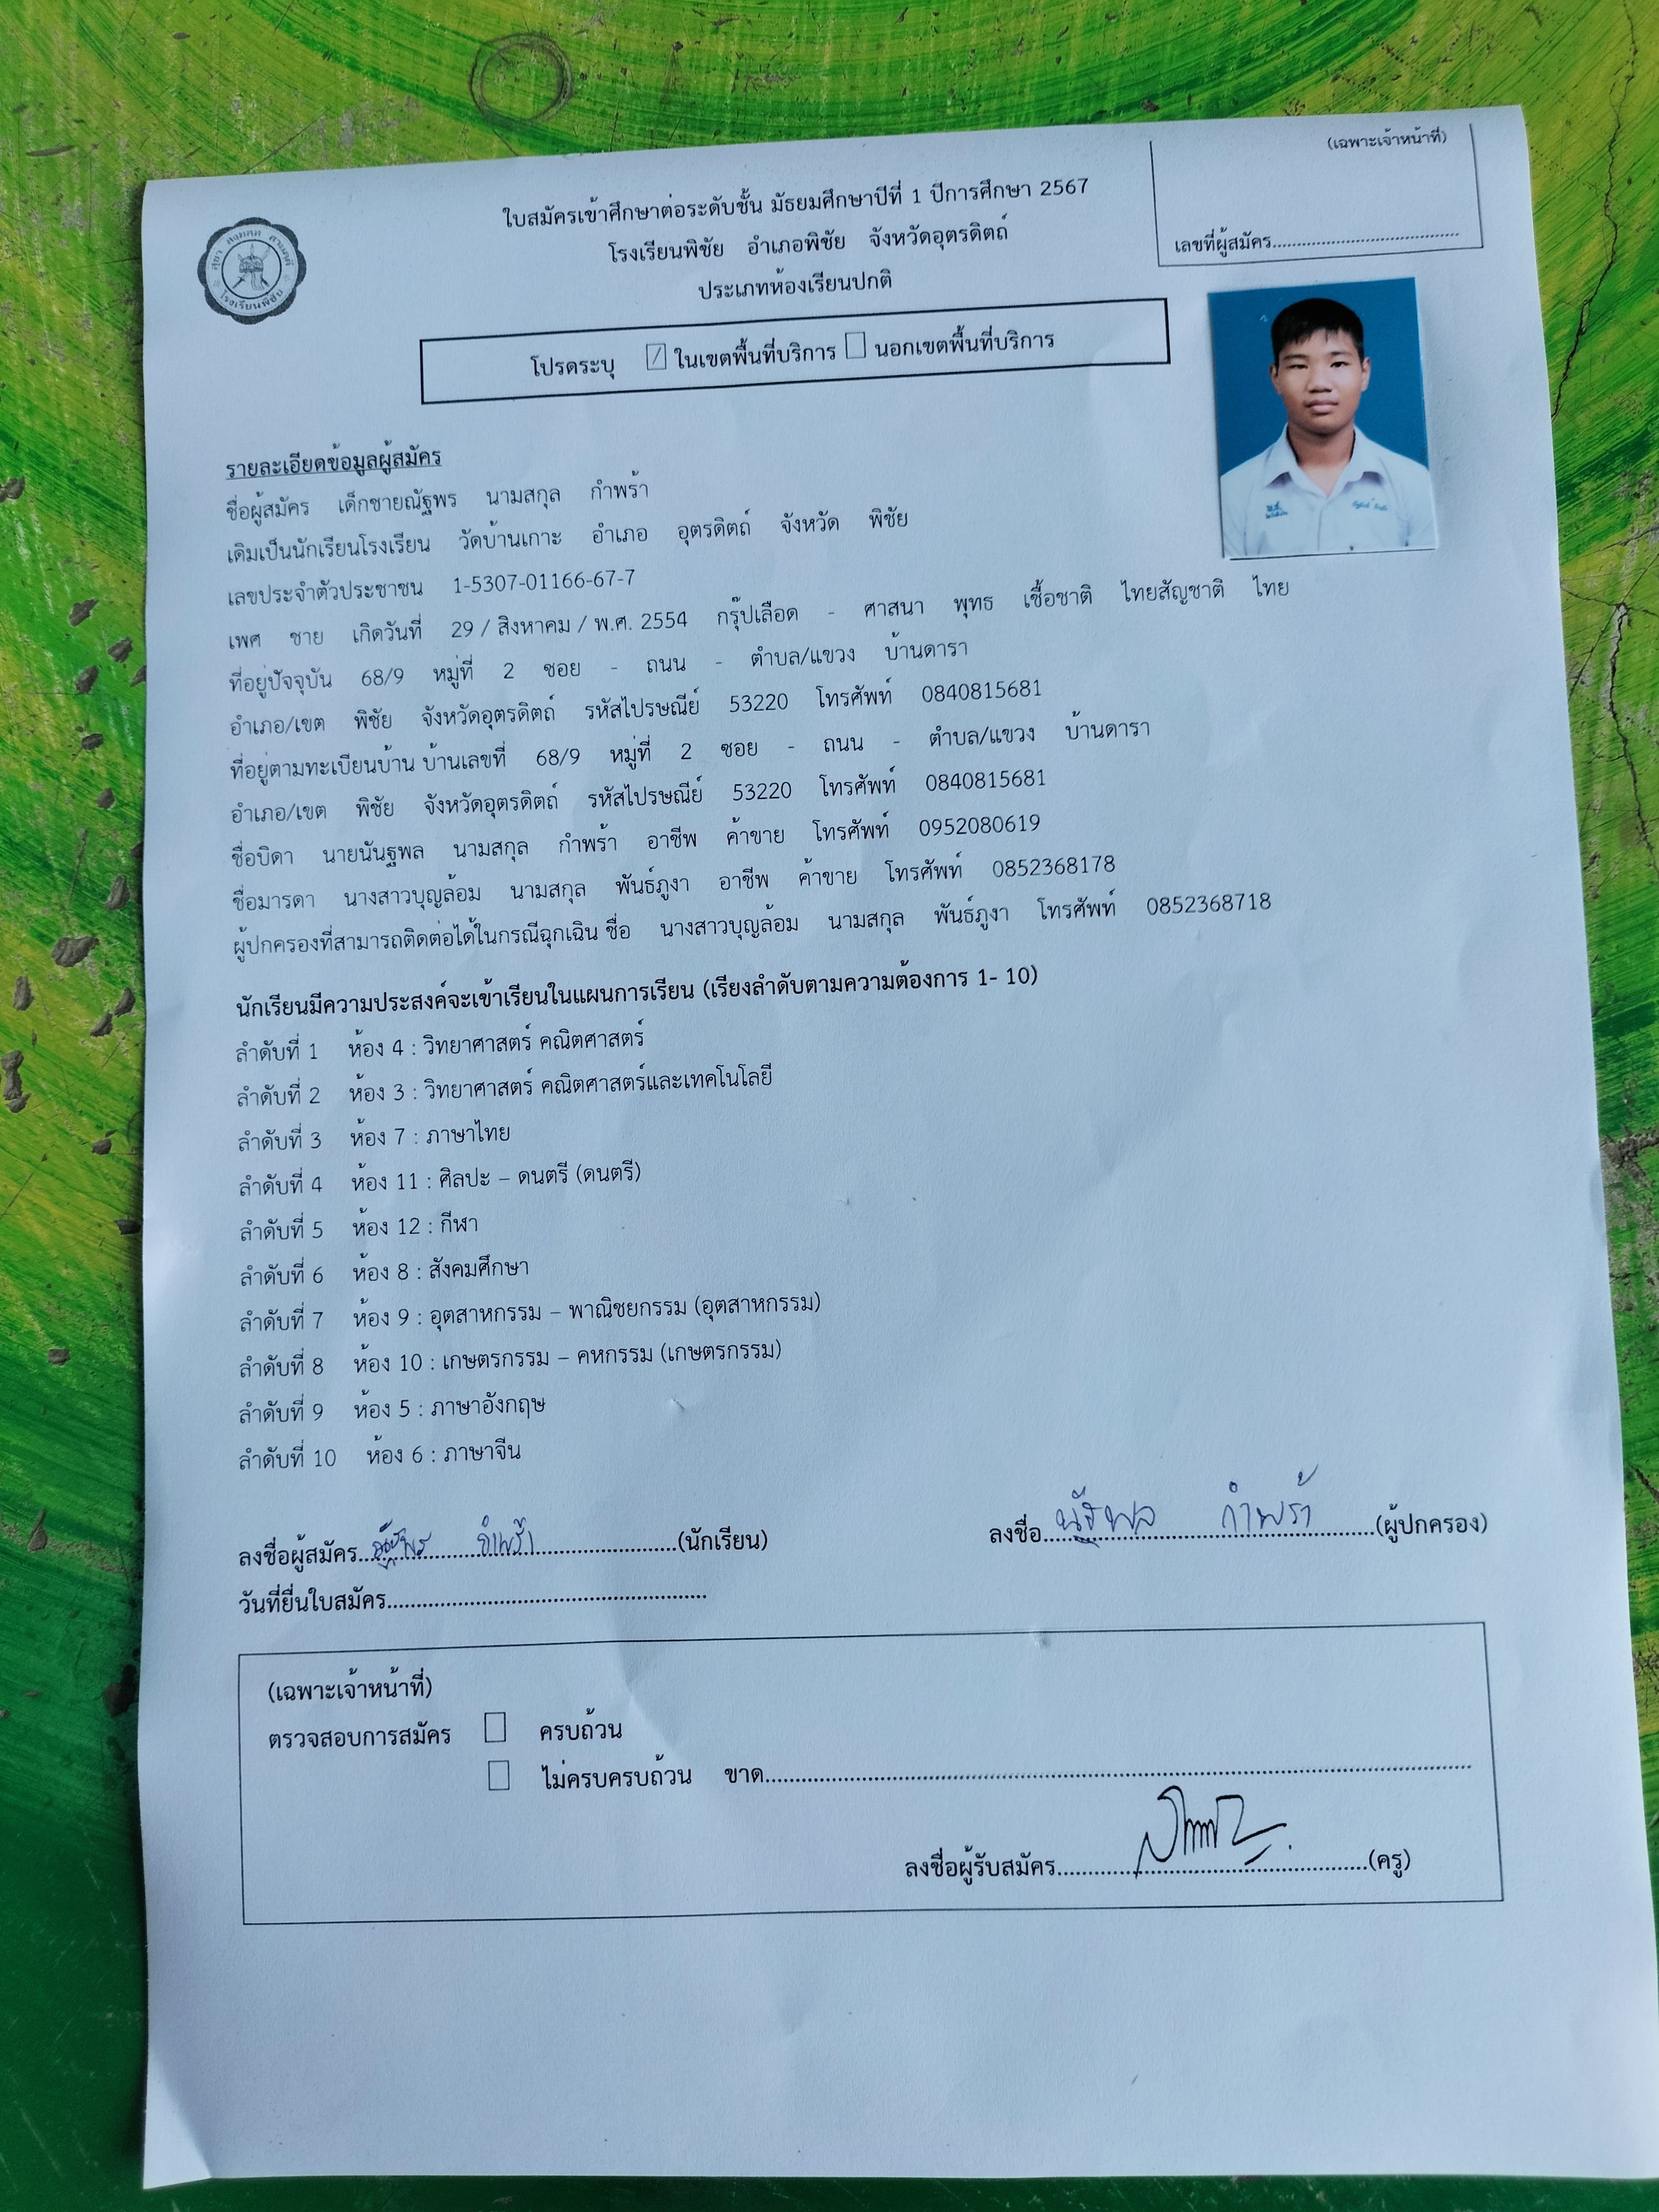 (เฉพาะเจ้าหน้าที่)
เลขที่ผู้สมัคร
ใบสมัครเข้าศึกษาต่อระดับชั้น มัธยมศึกษาปีที่ 1 ปีการศึกษา 2567
โรงเรียนพิชัย อำเภอพิชัย จังหวัดอุตรดิตถ์
ประเภทห้องเรียนปกติ
โรงเรียนพิชัย
โปรดระบุ ☑ ในเขตพื้นที่บริการ ☐ นอกเขตพื้นที่บริการ
รายละเอียดข้อมูลผู้สมัคร
ชื่อผู้สมัคร เด็กชายณัฐพร นามสกุล กำพร้า
เดิมเป็นนักเรียนโรงเรียน วัดบ้านเกาะ อำเภอ อุตรดิตถ์ จังหวัด พิชัย
เลขประจำตัวประชาชน 1-5307-01166-67-7
เพศ ชาย เกิดวันที่ 29 / สิงหาคม / พ.ศ. 2554 กรุ๊ปเลือด - ศาสนา พุทธ เชื้อชาติ ไทยสัญชาติ ไทย
ที่อยู่ปัจจุบัน 68/9 หมู่ที่ 2 ซอย - ถนน - ตำบล/แขวง บ้านดารา
อำเภอ/เขต พิชัย จังหวัดอุตรดิตถ์ รหัสไปรษณีย์ 53220 โทรศัพท์ 0840815681
ที่อยู่ตามทะเบียนบ้าน บ้านเลขที่ 68/9 หมู่ที่ 2 ซอย - ถนน - ตำบล/แขวง บ้านดารา
อำเภอ/เขต พิชัย จังหวัดอุตรดิตถ์ รหัสไปรษณีย์ 53220 โทรศัพท์ 0840815681
ชื่อบิดา นายนันฐพล นามสกุล กำพร้า อาชีพ ค้าขาย โทรศัพท์ 0952080619
ชื่อมารดา นางสาวบุญล้อม นามสกุล พันธ์ภูงา อาชีพ ค้าขาย โทรศัพท์ 0852368178
ผู้ปกครองที่สามารถติดต่อได้ในกรณีฉุกเฉิน ชื่อ นางสาวบุญล้อม นามสกุล พันธ์ภูงา โทรศัพท์ 0852368718
นักเรียนมีความประสงค์จะเข้าเรียนในแผนการเรียน (เรียงลำดับตามความต้องการ 1- 10)
ลำดับที่ 1 ห้อง 4 : วิทยาศาสตร์ คณิตศาสตร์
ลำดับที่ 2 ห้อง 3 : วิทยาศาสตร์ คณิตศาสตร์และเทคโนโลยี
ลำดับที่ 3 ห้อง 7 : ภาษาไทย
ลำดับที่ 4 ห้อง 11 : ศิลปะ – ดนตรี (ดนตรี)
ลำดับที่ 5 ห้อง 12 : กีฬา
ลำดับที่ 6 ห้อง 8 : สังคมศึกษา
ลำดับที่ 7 ห้อง 9 : อุตสาหกรรม – พาณิชยกรรม (อุตสาหกรรม)
ลำดับที่ 8 ห้อง 10 : เกษตรกรรม – คหกรรม (เกษตรกรรม)
ลำดับที่ 9 ห้อง 5 : ภาษาอังกฤษ
ลำดับที่ 10 ห้อง 6 : ภาษาจีน
ลงชื่อผู้สมัคร ณัฐพร กำพร้า (นักเรียน) ลงชื่อ นัฐพล กำพร้า (ผู้ปกครอง)
วันที่ยื่นใบสมัคร
(เฉพาะเจ้าหน้าที่)
ตรวจสอบการสมัคร ☐ ครบถ้วน
☐ ไม่ครบครบถ้วน ขาด
ลงชื่อผู้รับสมัคร (ครู)